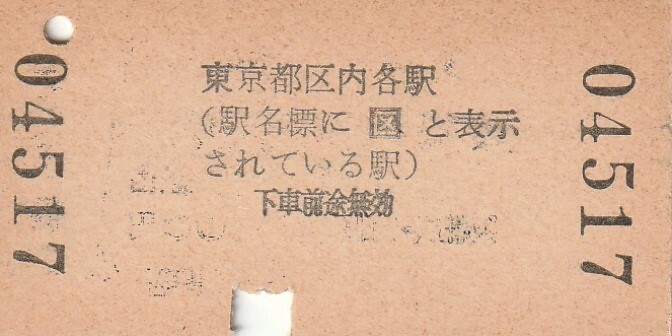 東京都区内各駅
（駅名標に 区 と表示
されている駅）
下車前途無効
04517
04517